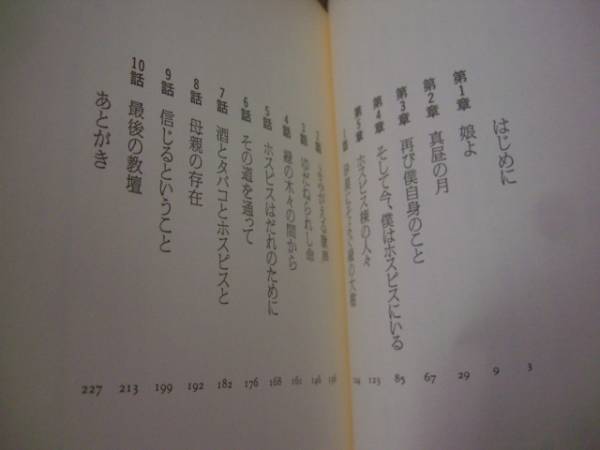 はじめに 3
第1章 娘よ 9
第2章 真昼の月 29
第3章 再び僕自身のこと 67
第4章 そして今、僕はホスピスにいる 85
第5章 ホスピス棟の人々 123
1話
2話 よみがえる
3話 ゆだねられし命 146
4話 緑の木々の間から 161
5話 ホスピスはだれのために 168
6話 その道を通って 176
7話 酒とタバコとホスピスと 182
8話 母親の存在 192
9話 信じるということ 199
10話 最後の教壇 213
あとがき 227